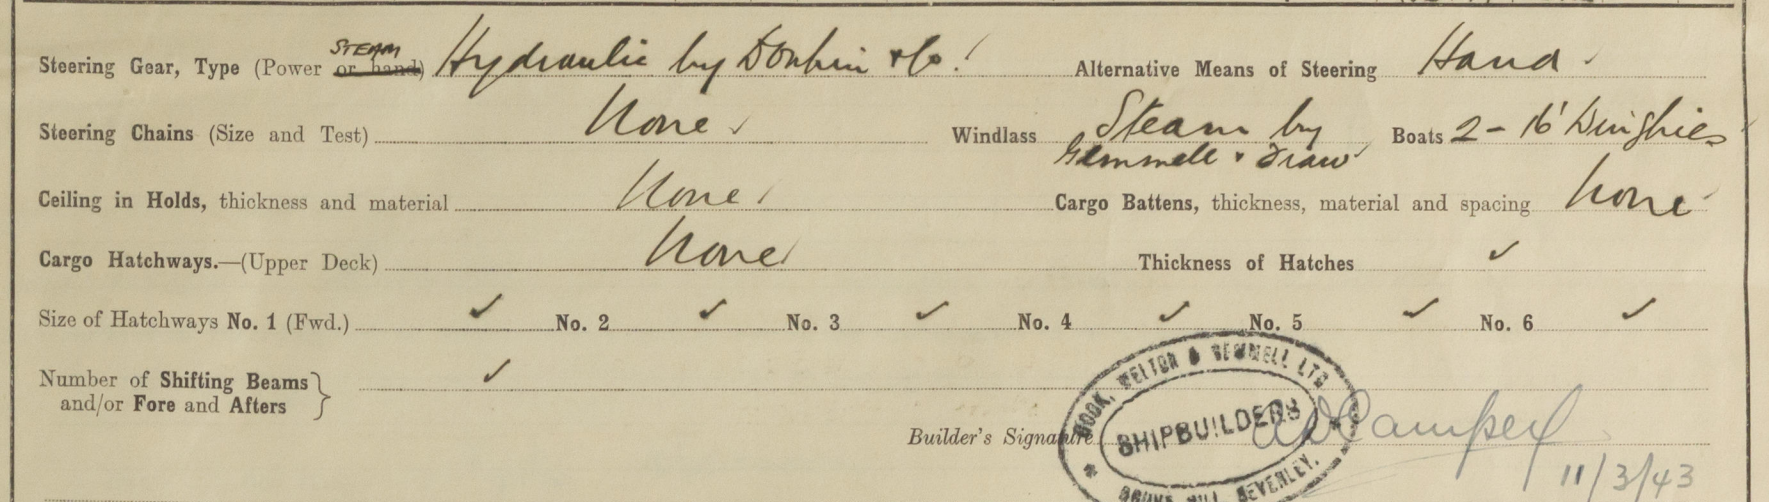 Steering Gear, Type (Power STEAM or hand) Hydraulic by Donkin & Co. Alternative Means of Steering Hand
Steering Chains (Size and Test) None ✓ Windlass Steam by Gemmell & Boats 2 - 16' Dinghies
Ceiling in Holds, thickness and material None Cargo Battens, thickness, material and spacing None
Cargo Hatchways.—(Upper Deck) None Thickness of Hatches ✓
Size of Hatchways No. 1 (Fwd.) ✓ No. 2 ✓ No. 3 ✓ No. 4 ✓ No. 5 ✓ No. 6 ✓
Number of Shifting Beams } ✓
and/or Fore and Afters
COOK, WELTON & GEMMELL LTD
SHIPBUILDERS
GROVE HILL, BEVERLEY.
Builder's Signature
11/3/43